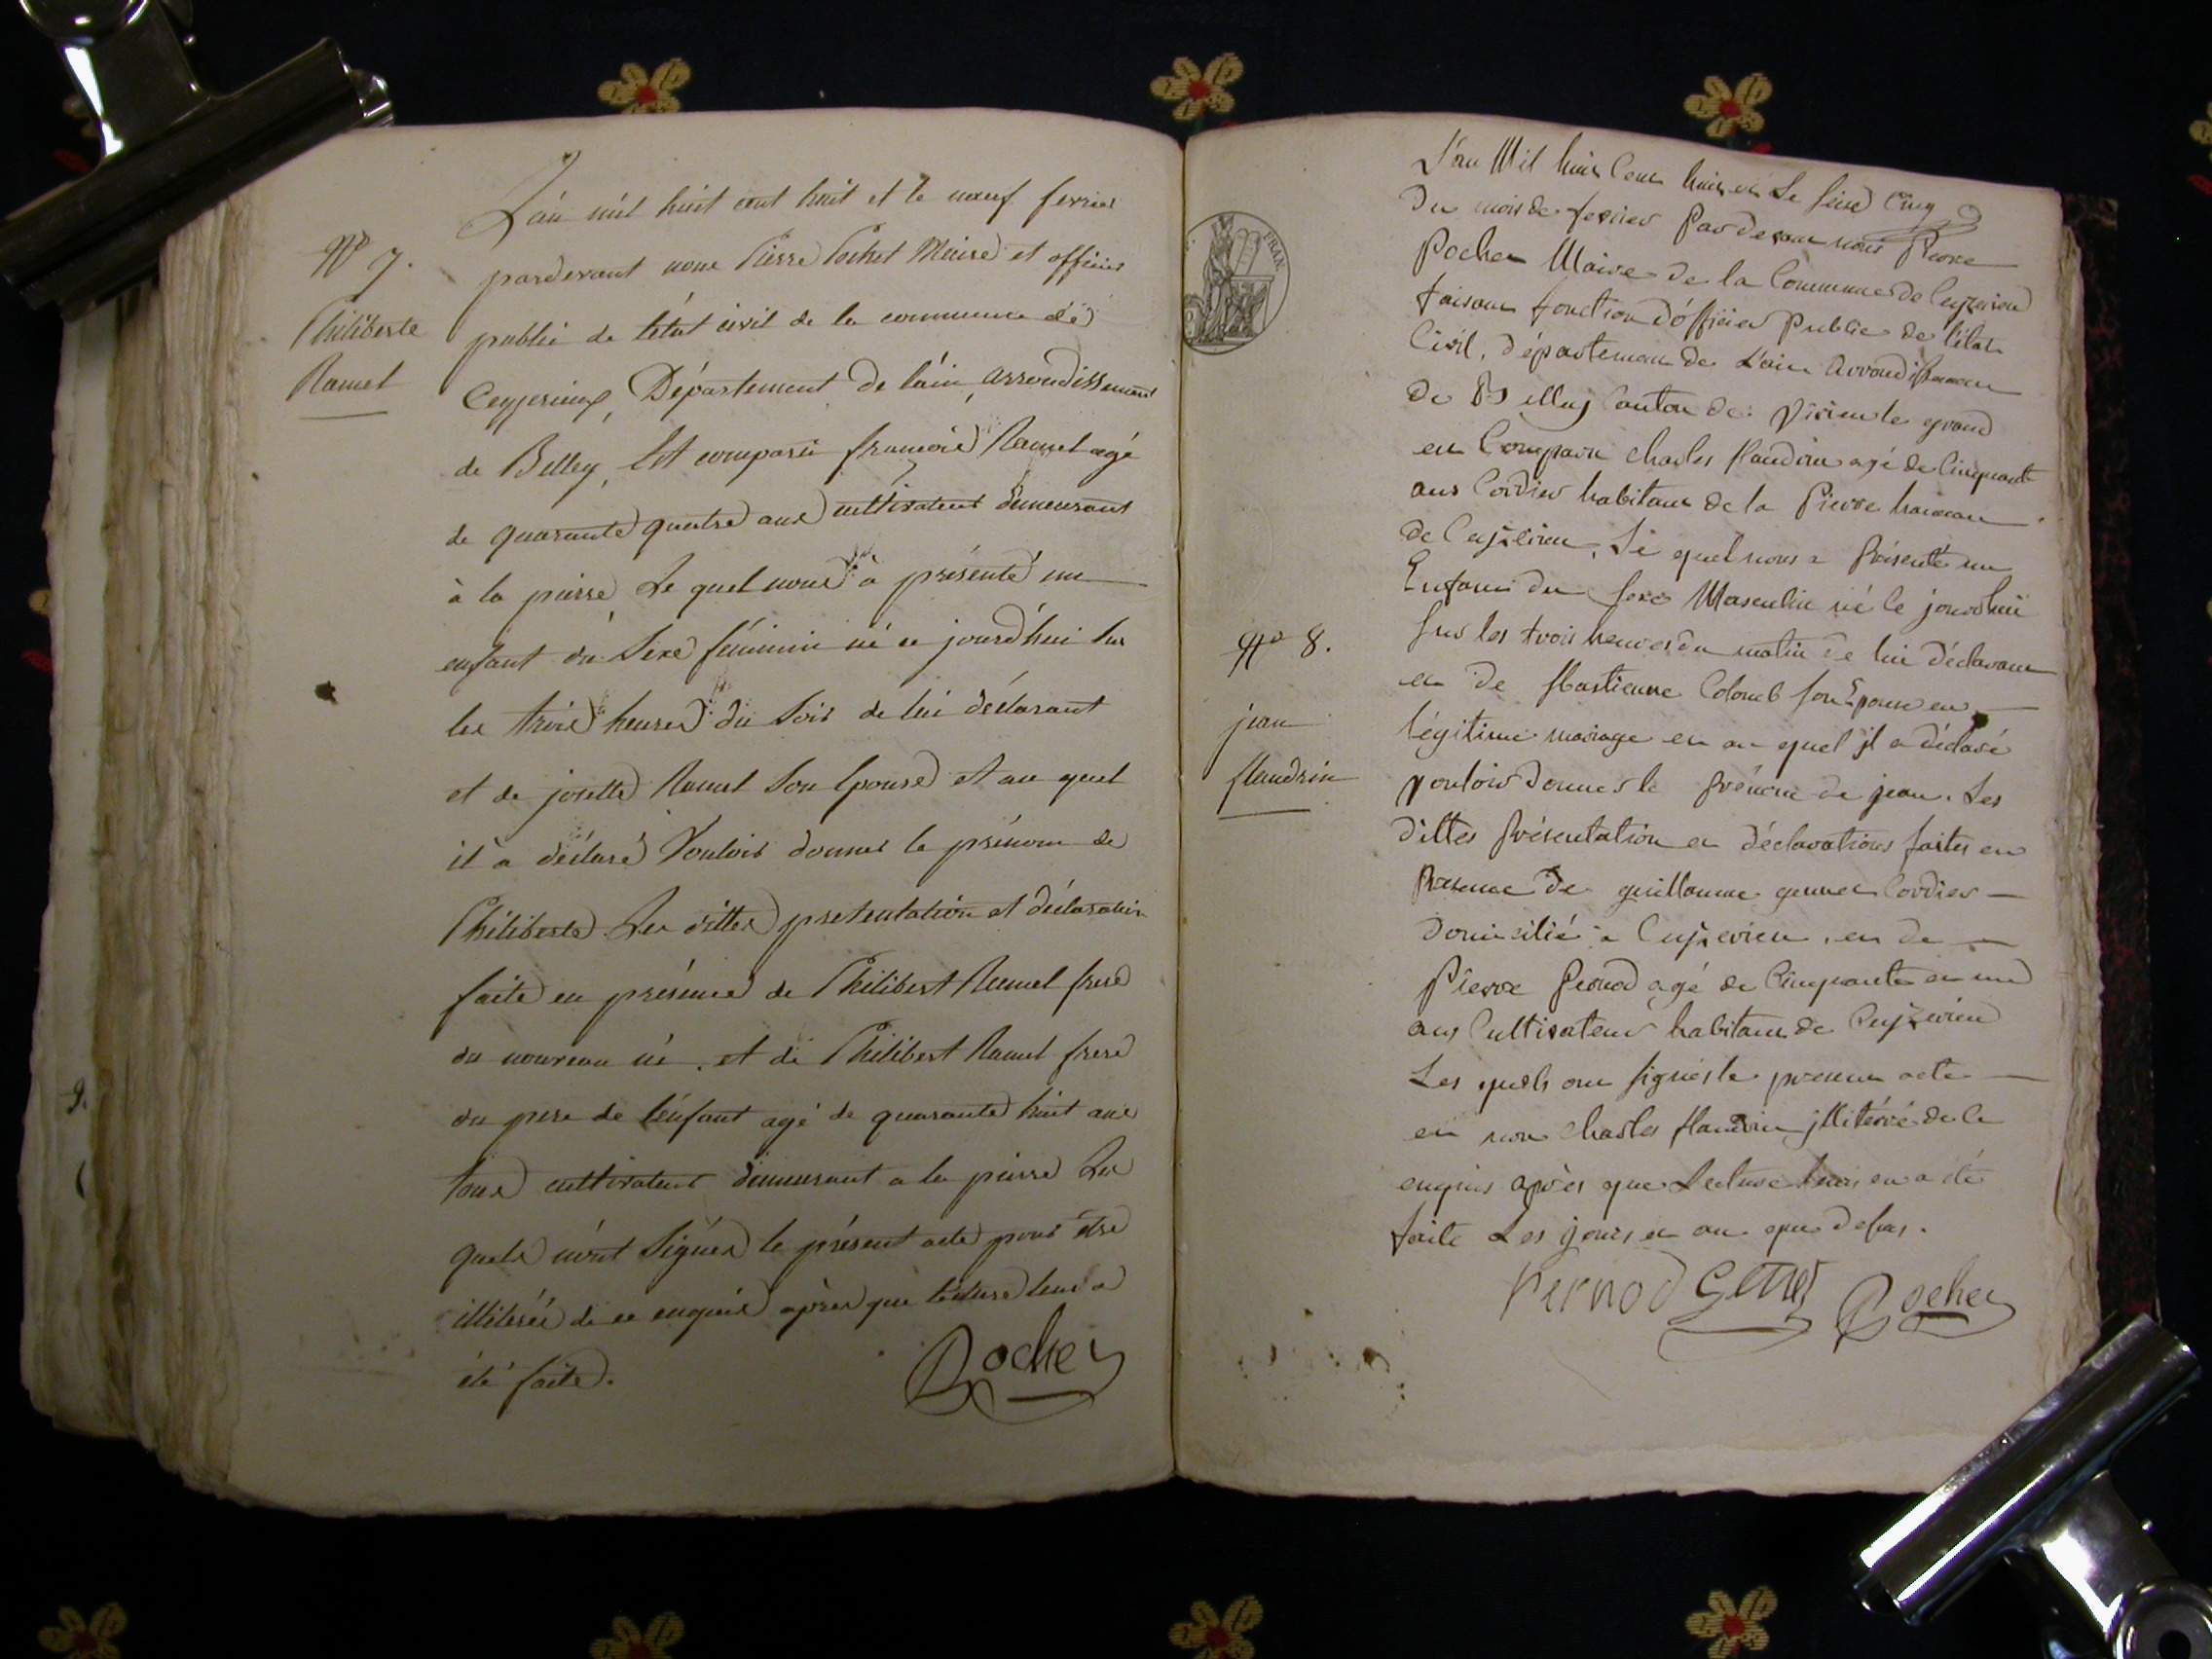 L'an mil huit cent huit et le neuf fevrier
N° 7. pardevant nous Pierre Pochet Maire et officier
Philiberte public de létat civil de la commune de
Ramel Ceyzerieux, Département de lain, arrondissement
de Belley, Est comparu françois Ramel agé
de quarante quatre ans cultivateur demeurant
à la pierre Le quel nous à présenté un
enfant du Sexe féminin né ce jourd'hui sur
les trois heures du Soir de lui déclarant
et de josette Ramel Son Epouse et au quel
il a déclaré Vouloir donner le prénom de
Philiberte Les dittes presentation et déclaration
faite en présence de Philibert Ramel frere
du nouveau né, et de Philibert Ramel frere
du pere de l'enfant agé de quarante huit ans
tous cultivateur demeurant a la pierre Les
quels n'ont Signés le présent acte pour être
illiterés de ce enquis après que lecture leur a
été faite.
Pochet
FRAN
L'an Mil huit Cent huit et Le Cinq
Du mois de fevrier Par devant nous Pierre
Pochet Maire de la Commune de Ceyzerieu
faisant fonction d'officier Public de l'état
Civil, département de L'ain arrondissement
de Belley Canton de Virieu le grand
est Comparu charles flandrin agé de Cinquante
ans Cordier habitant de la Pierre hameau
de Ceyzerieu, Le quel nous a Présenté un
Enfant du sexe Masculin né le jourd'hui
N° 8. sur les trois heures du matin de lui déclarant
et de Colomb son Epouse en
jean légitime mariage et au quel il a déclaré
flandrin vouloir donner le Prénom de jean. Les
dittes Présentation et déclarations faites en
Presence de guillaume gennet Cordier
domicilié a Ceyzerieu, et de
Pierre Pernod agé de Cinquante et un
ans Cultivateur habitant de Ceyzerieu
Les quels ont signés le present acte
et non charles flandrin jllitéré de ce
enquis après que Lecture leur en a été
faite Les jours et an que dessus.
Pernod Genet Pochet
9.